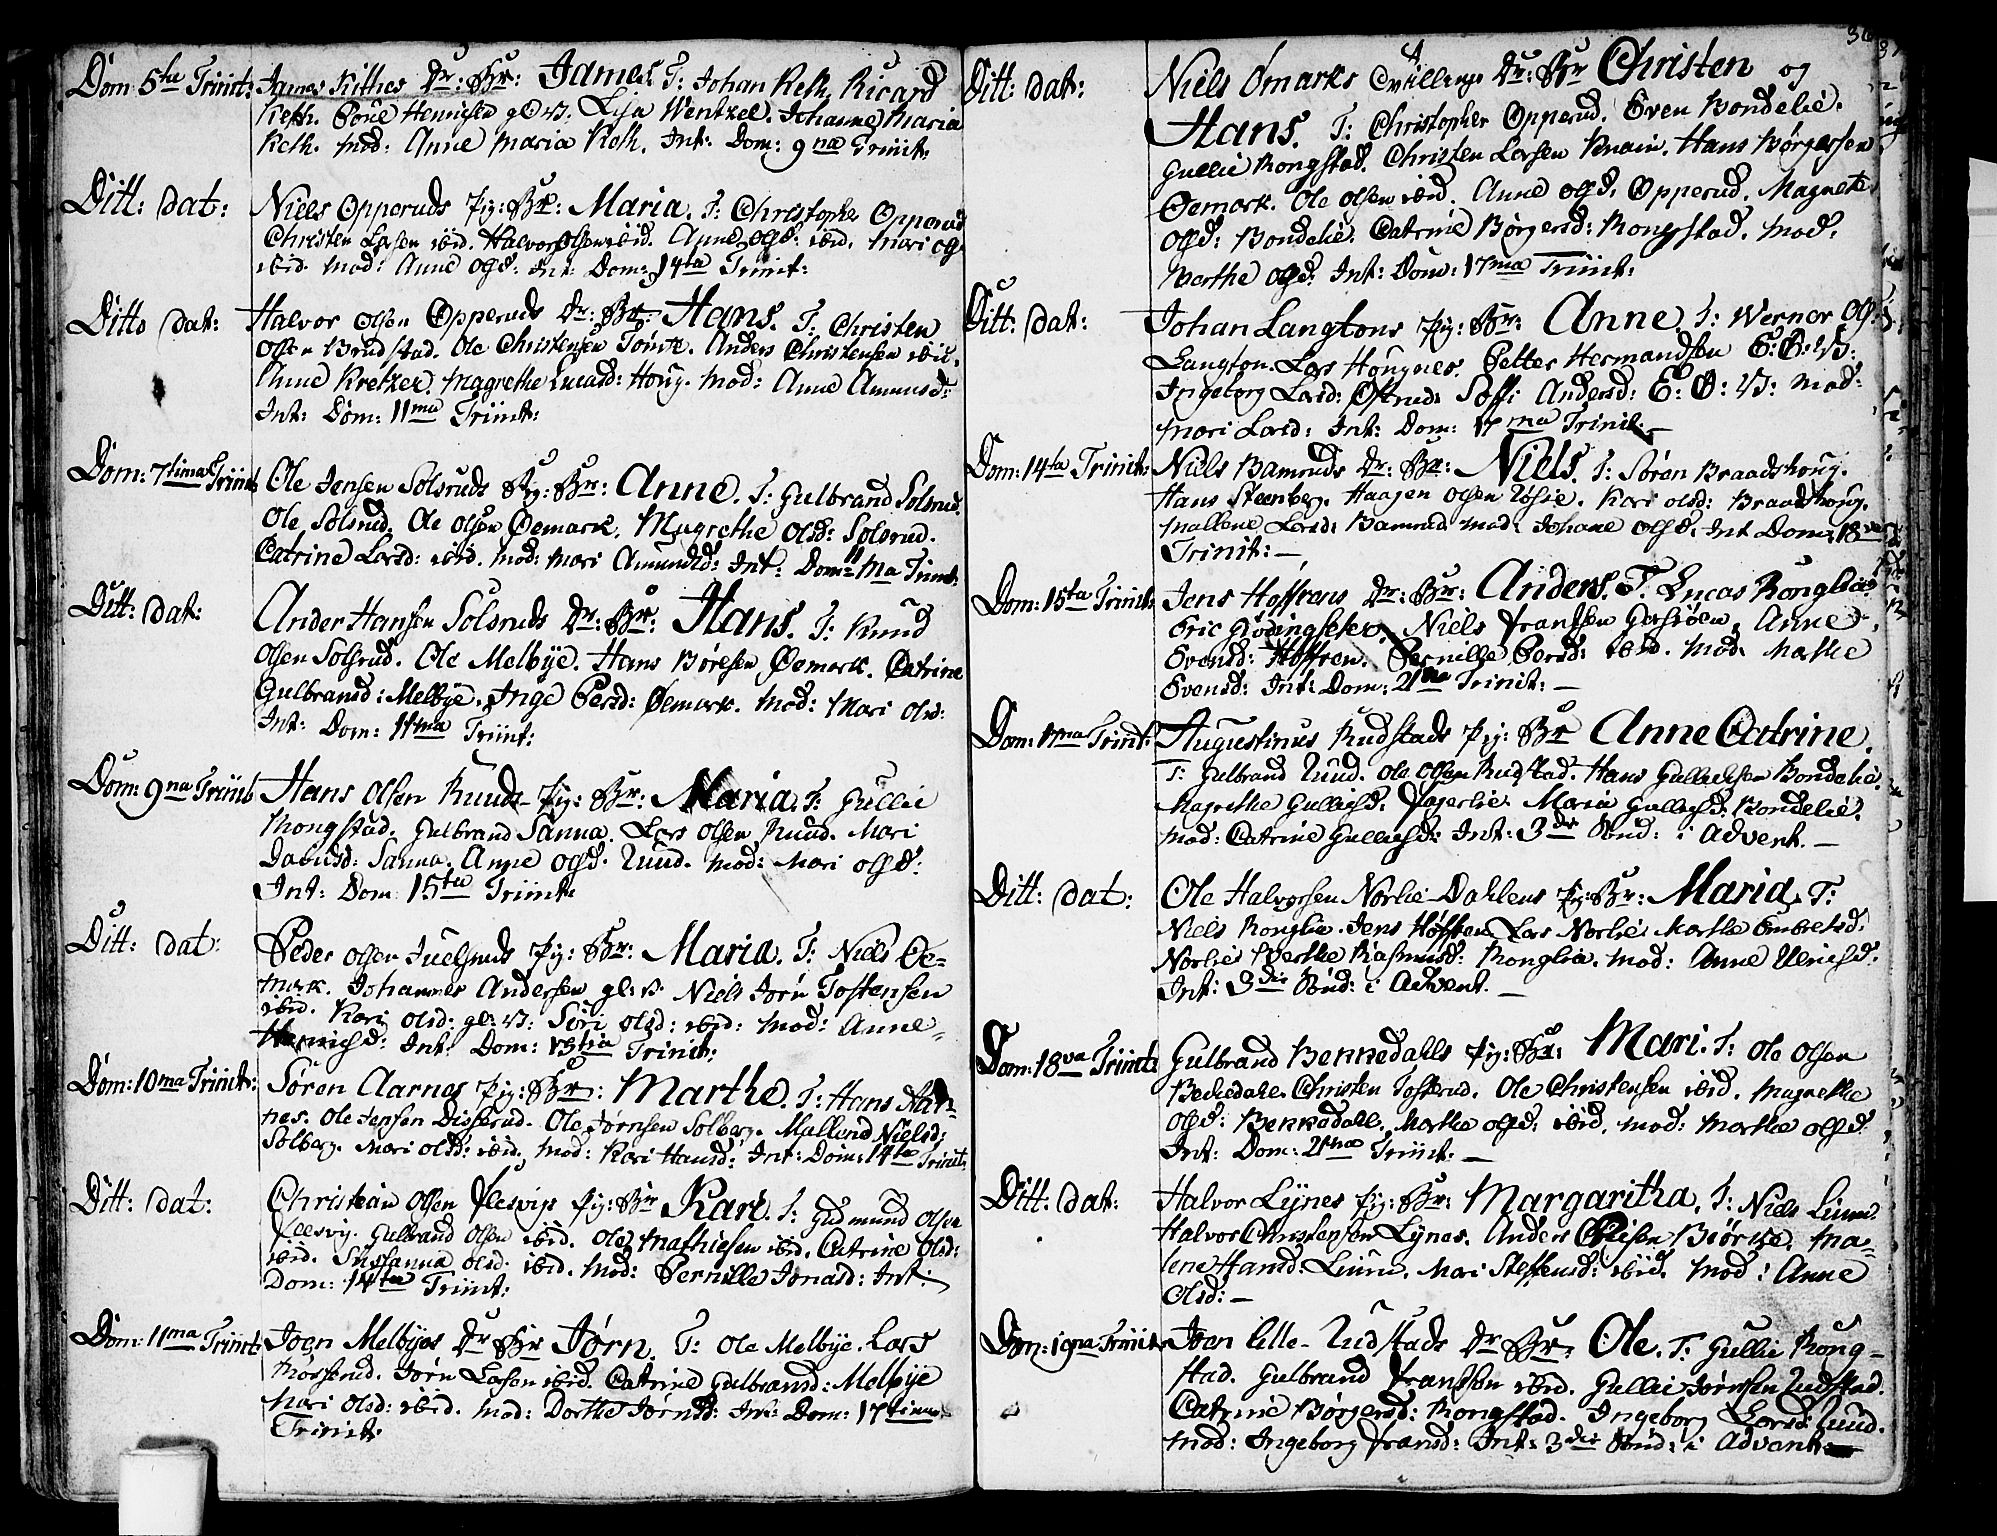 Dom 5te Trinit: James Kittes Dr: Br: James. T: Johan Keth, Ricard
Keth. Poüel Hennigsen gl: V: Lisa Wentzel. Johanne Maria
Keth. mod: Anne Maria Keth. Int: Dom: 9na Trinit:
Ditt: dat: Niels Opperuds Pig: Br: Maria. T: Christopher Opperud
Christen Larsen ibid. Halvor Olsen ibid. Anne Olsd: ibid. Mari Ols
ibid. mod: Anne Olsd: Int: Dom: 14ta Trinit:
Ditto dat: Halvor Olsen Opperuds Dr: Br: Hans. T: Christen
Olsen Brudstad. Ole Christensen Tonte. Anders Christensen ibid.
Anne Kretzer. Magrethe Lucasd: Houg. mod: Anne Amunsd:
Int: Dom: 11ma Trinit:
Dom: 7tima Trinit: Ole Jensen Solsruds Pig: Br: Anne. T: Gulbrand Solsrud.
Ole Solsrud. Ole Olsen Øemark. Magrethe Olsd: Solsrud.
Catrine Larsd: ibid. mod: Mari Amundsd: Int: Dom: 11ma Trinit:
Ditt: dat: Ander Hansen Solsruds Dr: Br: Hans. T: Knud
Olsen Solsrud. Ole Melbÿe. Hans Børesen Øemark. Catrine
Gulbransd: Melbÿe. Inge Persd: Øemark. mod: Mari Olsd:
Int: Dom: 11ma Trinit:
Dom: 9na Trinit Hans Olsen Ruuds Pig: Br: Maria. T: Gullie
Rongstad. Gulbrand Sanna. Lars Olsen Ruud. Mari
Davidsd: Sanna. Anne Olsd: Ruud. mod: Mari Olsd:
Int: Dom: 15ta Trinit:
Ditt: dat: Peder Olsen Juelsruds Pig: Br: Maria. T: Niels Øe-
mark. Johannes Andersen gl: V: Niels Jørn Tostensen
ibid. Kari Olsd: gl: V: Siri Olsd: ibid: mod: Anne
Henrichsd: Int: Dom: 13tia Trinit:
Dom: 10ma Trinit: Søren Aarnes Pig: Br: Marthe. T: Hans Aar-
nes. Ole Jensen Disserud. Ole Jørnsen Solberg. Mallene Nielsd:
Solberg. Mari Olsd: ibid. mod: Kari Hansd: Int: Dom: 14ta Trinit:
Ditt: dat: Christian Olsen Flesvigs Pig: Br: Kari. T: Gudmund Olsen
Flesvig. Gulbrand Olsen ibid. Ole Mathiesen ibid. Catrine Olsd:
ibid. Sussanna Olsd: ibid. mod: Pernille Jonasd: Int:
Dom: 14ta Trinit:
Dom: 11ma Trinit: Joen Melbÿes Dr: Br: Jørn. T: Ole Melbÿe. Lars
Rørsrud. Jørn Larsen ibid. Catrine Gulbransd: Melbÿe
Mari Olsd: ibid. mod: Dorthe Jørnsd: Int: Dom: 17tima
Trinit:
36
Ditt: dat: Niels Ømarks tvillinge Dr: Br: Christen og
Hans. T: Christopher Opperud. Even Bondelie.
Gullie Rongstad. Christen Larsen Knain. Hans Børgersen
Øemark. Ole Olsen ibid. Anne Olsd: Opperud. Magnete
Olsd: Bondelie. Catrine Børgersd: Rongstad. mod:
Marthe Olsd: Int: Dom: 17ma Trinit:
Ditt: dat: Johan Langtons Pig: Br: Anne. T: Werner Ols:
Langton. Lars Hougnes. Petter Hermandsen E: O: V:
Ingeborg Larsd: Østrud. Soffi Andersd: E: O: V: mod:
Mari Larsd: Int: Dom: 17ma Trinit:
Dom: 14ta Trinit: Niels Bamruds Dr: Br: Niels. T: Søren Braadshoug.
Hans Steenberg. Haagen Olsen Løsie. Kari Olsd: Braadshoug.
Mallene Larsd: Bamrud. mod: Johane Olsd: Int: Dom: 18va
Trinit:
Dom: 15ta Trinit: Jens Hoffrens Dr: Br: Anders. T: Lucas Ronglia.
Eric Glødingseter. Niels Frantsen Gusrøen. Anne
Evensd: Hoffren. Pernille Persd: ibid. mod: Marthe
Evensd: Int: Dom: 21ma Trinit:
Dom: 17ma Trinit: Augustinus Rudstads Pig: Br: Anne Catrine.
T: Gulbrand Ruud. Ole Olsen Rudstad. Hans Gulliksen Bondelie.
Magrethe Gulliksd: Fagerlie. Maria Gulliksd: Bondelie.
mod: Catrine Gulliksd: Int: 3die Sönd: i Advent.
Ditt: dat: Ole Halvorsen Norlie-Dahlens Pig: Br: Maria. T:
Niels Ronglia. Jens Hoffren. Lars Norlie. Marthe Embretsd:
Norlie. Berthe Rasmusd: Ronglia. mod: Anne Ulrichsd:
Int: 3die Sönd: i Advent.
Dom: 18va Trinit: Gulbrand Bekkedahls Pig: Br: Mari. T: Ole Olsen
Bekkedahl. Christen Tosterud. Ole Christensen ibid. Magrethe
Olsd: Bekkedahl. Marthe Olsd: ibid. mod: Marthe Olsd:
Int: Dom: 21ma Trinit:
Ditt: dat: Halvor Lÿnes Pig: Br: Margaritha. T: Niels Liunn.
Halvor Christensen Lÿnes. Anders Olsen Biørke. Ma-
lene Hansd: Liunn. Mari Steffensd: ibid. mod: Anne
Olsd:
Dom: 19na Trinit: Joen Lille-Rudstads Dr: Br: Ole. T: Gullie Rong-
stad. Gulbrand Frantsen ibid. Gullie Jørnsen Rudstad.
Catrine Børgersd: Rongstad. Ingeborg Larsd: Ruud.
mod: Ingeborg Fransd: Int: 3die Sönd: i Advent.